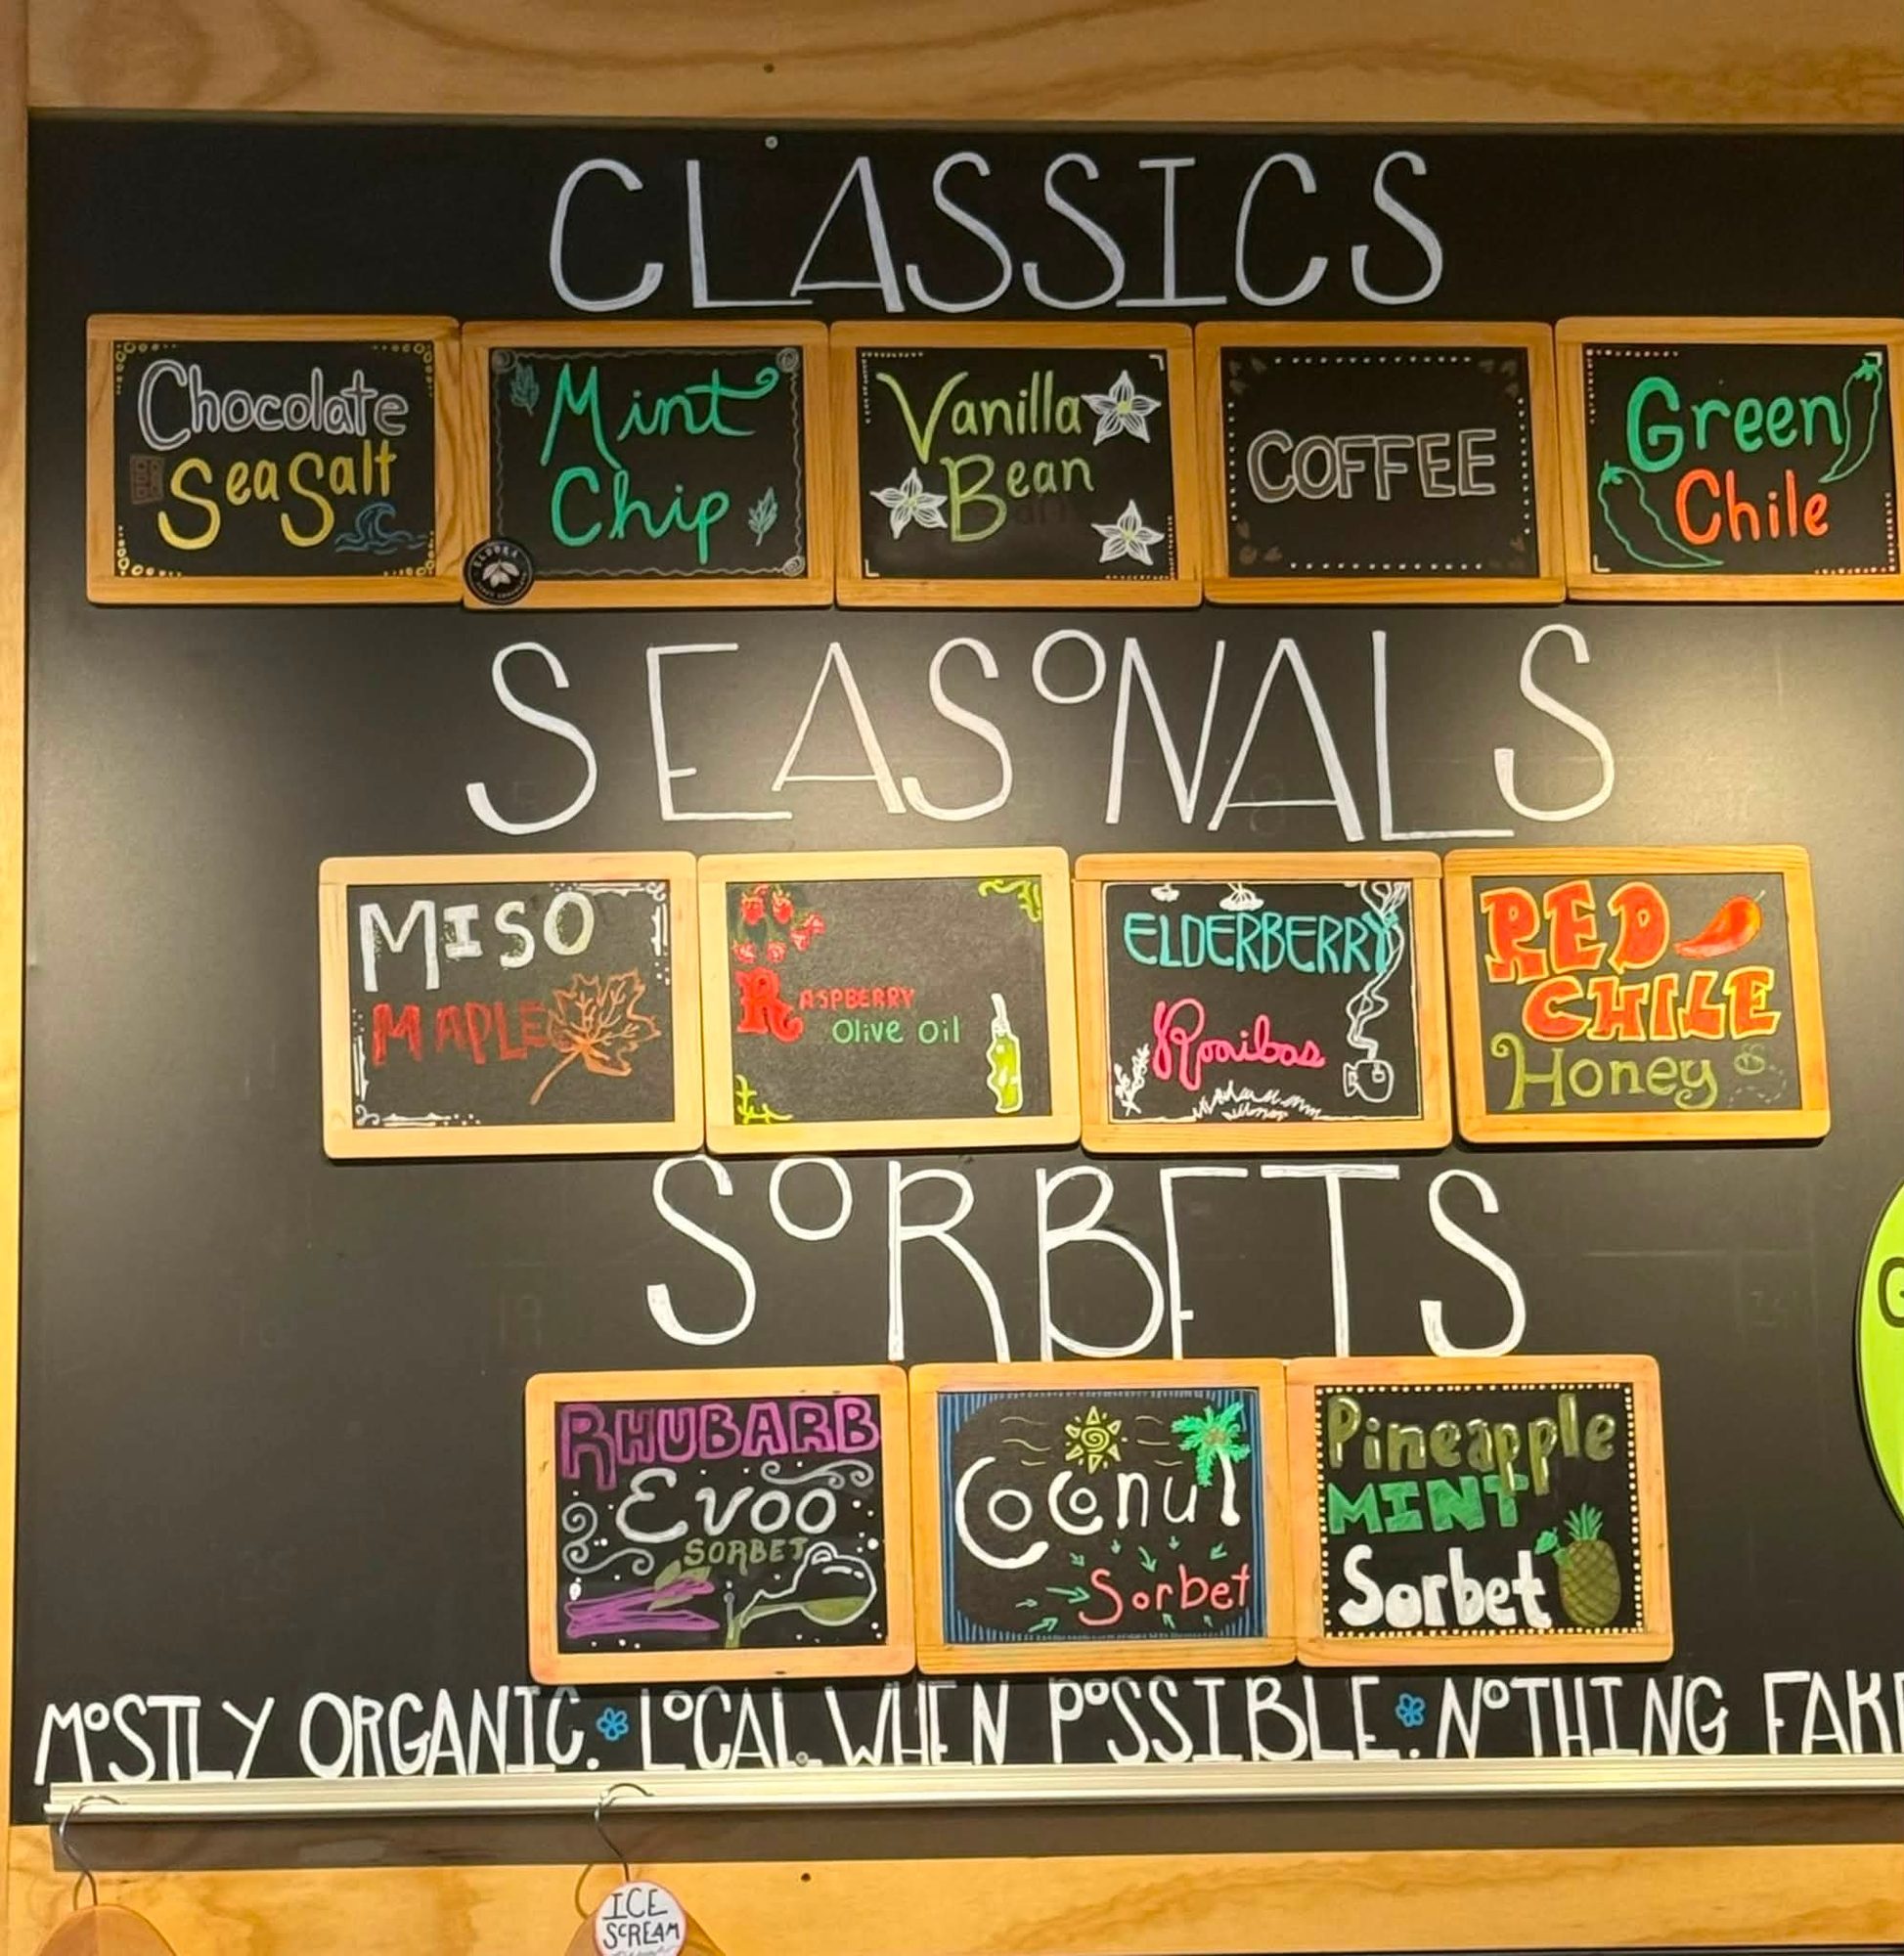 CLASSICS
Chocolate
Sea Salt
Mint
Chip
Vanilla
Bean
COFFEE
Green
Chile
ELDORA
SEASONALS
MISO
MAPLE
RASPBERRY
Olive Oil
ELDERBERRY
Rooibos
RED
CHILE
Honey
SORBETS
RHUBARB
EVOO
SORBET
Coconut
Sorbet
Pineapple
MINT
Sorbet
MOSTLY ORGANIC. LOCAL WHEN POSSIBLE. NOTHING FAKE
ICE
SCREAM